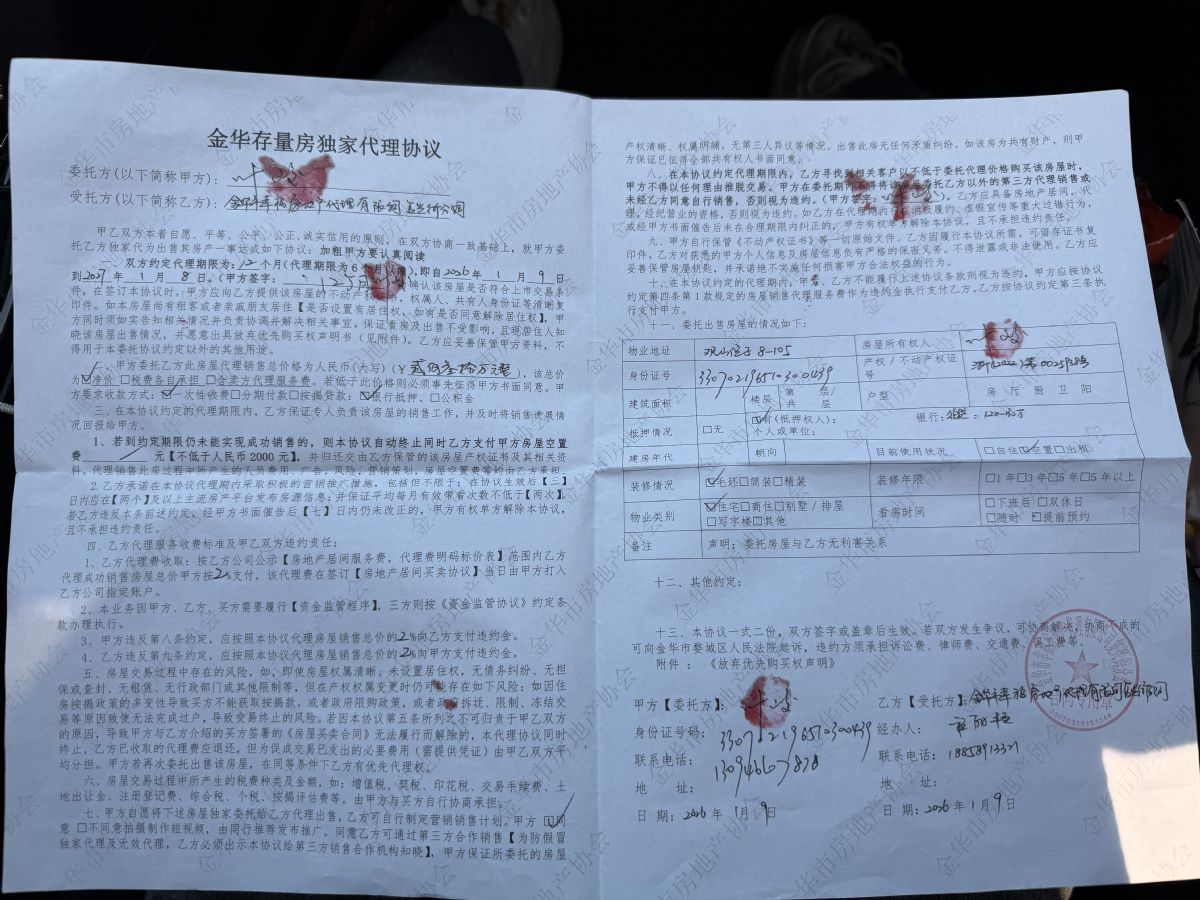 金华存量房独家代理协议
委托方(以下简称甲方):
受托方(以下简称乙方):
甲乙双方本着自愿、平等、公平、公正,诚实信用的原则,在双方协商一致基础上,就甲方委
托乙方独家代为出售其房产一事达成如下协议:加粗甲方要认真阅读
一、双方约定代理期限为:12个月(代理期限为6个月 ),即自2026年 1月 9日
到2027年 1月 8日。(甲方签字: 确认该房屋是否符合上市交易条
件,在签订本协议时,甲方应向乙方提供该房屋的不动产权证书,权属人、共有人身份证等清晰复
印件。如本房屋尚有租客或者亲戚朋友居住【是否设置有居住权,如有是否同意解除居住权】,甲
方同时须如实告知相关情况并负责协调并解决相关事宜,保证看房及出售不受影响,且现居住人知
晓该房屋出售情况,并愿意出具放弃优先购买权声明书(见附件)。乙方应妥善保管甲方资料,不
得用于本委托协议约定以外的其他用途。
二、甲方委托乙方此房屋代理销售总价格为人民币(大写)(¥ 贰佰叁拾万 ),该总价
为☑净价 □税费各自承担 □含卖方代理服务费。若低于此价格则必须事先征得甲方书面同意。甲
方要求收款方式:☑一次性收费□分期付款□按揭贷款:☑银行抵押、□公积金
三、在本协议约定的代理期限内,乙方保证专人负责该房屋的销售工作,并及时将销售进展情
况回报给甲方。
1、若到约定期限仍未能实现成功销售的,则本协议自动终止同时乙方支付甲方房屋空置
费 / 元【不低于人民币 2000 元】,并归还交由乙方保管的该房屋产权证书及其相关资
料,代理销售此房过程中所产生的人员费用、广告,风险,营销策划,房屋空置费等均由乙方承担。
2.乙方承诺在代理期内采取积极的营销推广措施,包括但不限于:在协议生效后【三】
日内应在【两个】及以上主流房产平台发布房源信息;并保证平均每月有效带看次数不低于【两次】。
若乙方违反本条前述约定,经甲方书面催告后【七】日内仍未改正的,甲方有权单方解除本协议,
且不承担违约责任。
四、乙方代理服务收费标准及甲乙双方违约责任:
1、乙方代理费收取:按乙方公司公示【房地产居间服务费,代理费明码标价表】范围内乙方
代理成功销售房屋总价甲方按2%支付,该代理费在签订【房地产居间买卖协议】当日由甲方打入
乙方公司指定账户。
2、本业务因甲方、乙方,买方需要履行【资金监管程序】,三方则按《资金监管协议》约定条
款办理执行。
3、甲方违反第八条约定,应按照本协议代理房屋销售总价的2%向乙方支付违约金。
4、乙方违反第九条约定,应按照本协议代理房屋销售总价的2%向甲方支付违约金。
五、房屋交易过程中存在的风险,如,即使房屋权属清晰、未设置居住权,无债务纠纷、无担
保或查封、无租赁、无行政部门或其他限制等,但在产权权属变更时仍可能存在如下风险:如因住
房按揭政策的多变性导致买方不能获取按揭款,或者政府限购政策,或者政府拆迁、限制、冻结交
易等原因致使无法完成过户,导致交易终止的风险。若因本协议第五条所列之不可归责于甲乙双方
的原因,导致甲方与乙方介绍的买方签署的《房屋买卖合同》无法履行而解除的,本代理协议同时
终止,乙方已收取的代理费应退还,但为促成交易已支出的必要费用(需提供凭证)由甲乙双方平
均分担。甲方若再次委托出售该房屋,在同等条件下乙方有优先代理权。
六、房屋交易过程中所产生的税费种类及金额,如:增值税、契税、印花税、交易手续费、土
地出让金、注册登记费、综合税、个税、按揭评估费等。由甲方与买方自行协商承担。
七、甲方自愿将下述房屋独家委托给乙方代理出售,乙方可自行制定营销销售计划。甲方 ☑同
意 □不同意拍摄制作短视频,由同行推荐发布推广。同意乙方可通过第三方合作销售【为防假冒
独家代理及无效代理,乙方必须出示本协议给第三方销售合作机构知晓】,甲方保证所委托的房屋
产权清晰、权属明确,无第三人异议等情况。出售此房无任何矛盾纠纷,如该房为共有财产,则甲
方保证已征得全部共有权人书面同意。
八、在本协议约定代理期限内,乙方寻找到相关客户以不低于委托代理价格购买该房屋时,
甲方不得以任何理由推脱交易。甲方在委托期内不得将该房屋委托乙方以外的第三方代理销售或
未经乙方同意自行销售,否则视为违约。(甲方签字: )。乙方应具备房地产居间,代
理,经纪营业的资格,否则视为违约。如乙方在代理期内存在消极履约、虚假宣传等重大过错行为,
或经甲方书面催告后未在合理期限内纠正的,甲方有权单方解除本协议,且不承担违约责任。
九、甲方自行保管《不动产权证书》等一切原始文件。乙方因履行本协议所需,可留存证书复
印件。乙方对获悉的甲方个人信息及房屋信息负有严格的保密义务,不得泄露或非法使用。乙方应
妥善保管房屋钥匙,并承诺绝不实施任何损害甲方合法权益的行为。
十、在本协议约定的代理期内,甲、乙方不能履行上述协议条款则视为违约,甲方应按协议
约定第四条第1款规定的房屋销售代理服务费作为违约金执行支付乙方。乙方按协议约定第三条执
行支付甲方。
十一、委托出售房屋的情况如下:
物业地址 8-105 房屋所有权人
身份证号 330702196510300439 产权/不动产权证号
建筑面积 楼层 第 层/共 层 户型 房 厅 厨 卫 阳
抵押情况 □无 ☑有(抵押权人): 个人或单位: 银行: 120-130万
建房年代 朝向 目前使用状况 □自住☑空置□出租
装修情况 ☑毛坯□简装□精装 装修年限 □1年□3年□5年□5年以上
物业类别 ☑住宅□商住□别墅/排屋 □写字楼□其他 看房时间 □下班后 □双休日 □随时 ☑提前预约
备注 声明:委托房屋与乙方无利害关系
十二、其他约定:
十三、本协议一式二份,双方签字或盖章后生效。若双方发生争议,可协商解决,协商不成的
可向金华市婺城区人民法院起诉,违约方须承担诉讼费、律师费、交通费、误工费等。
附件:《放弃优先购买权声明》
甲方【委托方】:
身份证号码: 330702196510300439
联系电话: 13094667878
地 址:
日 期: 2026 年 1月 9日
乙方【受托方】:
经办人:
联系电话: 18858913321
地 址:
日 期: 2026 年 1月 9日